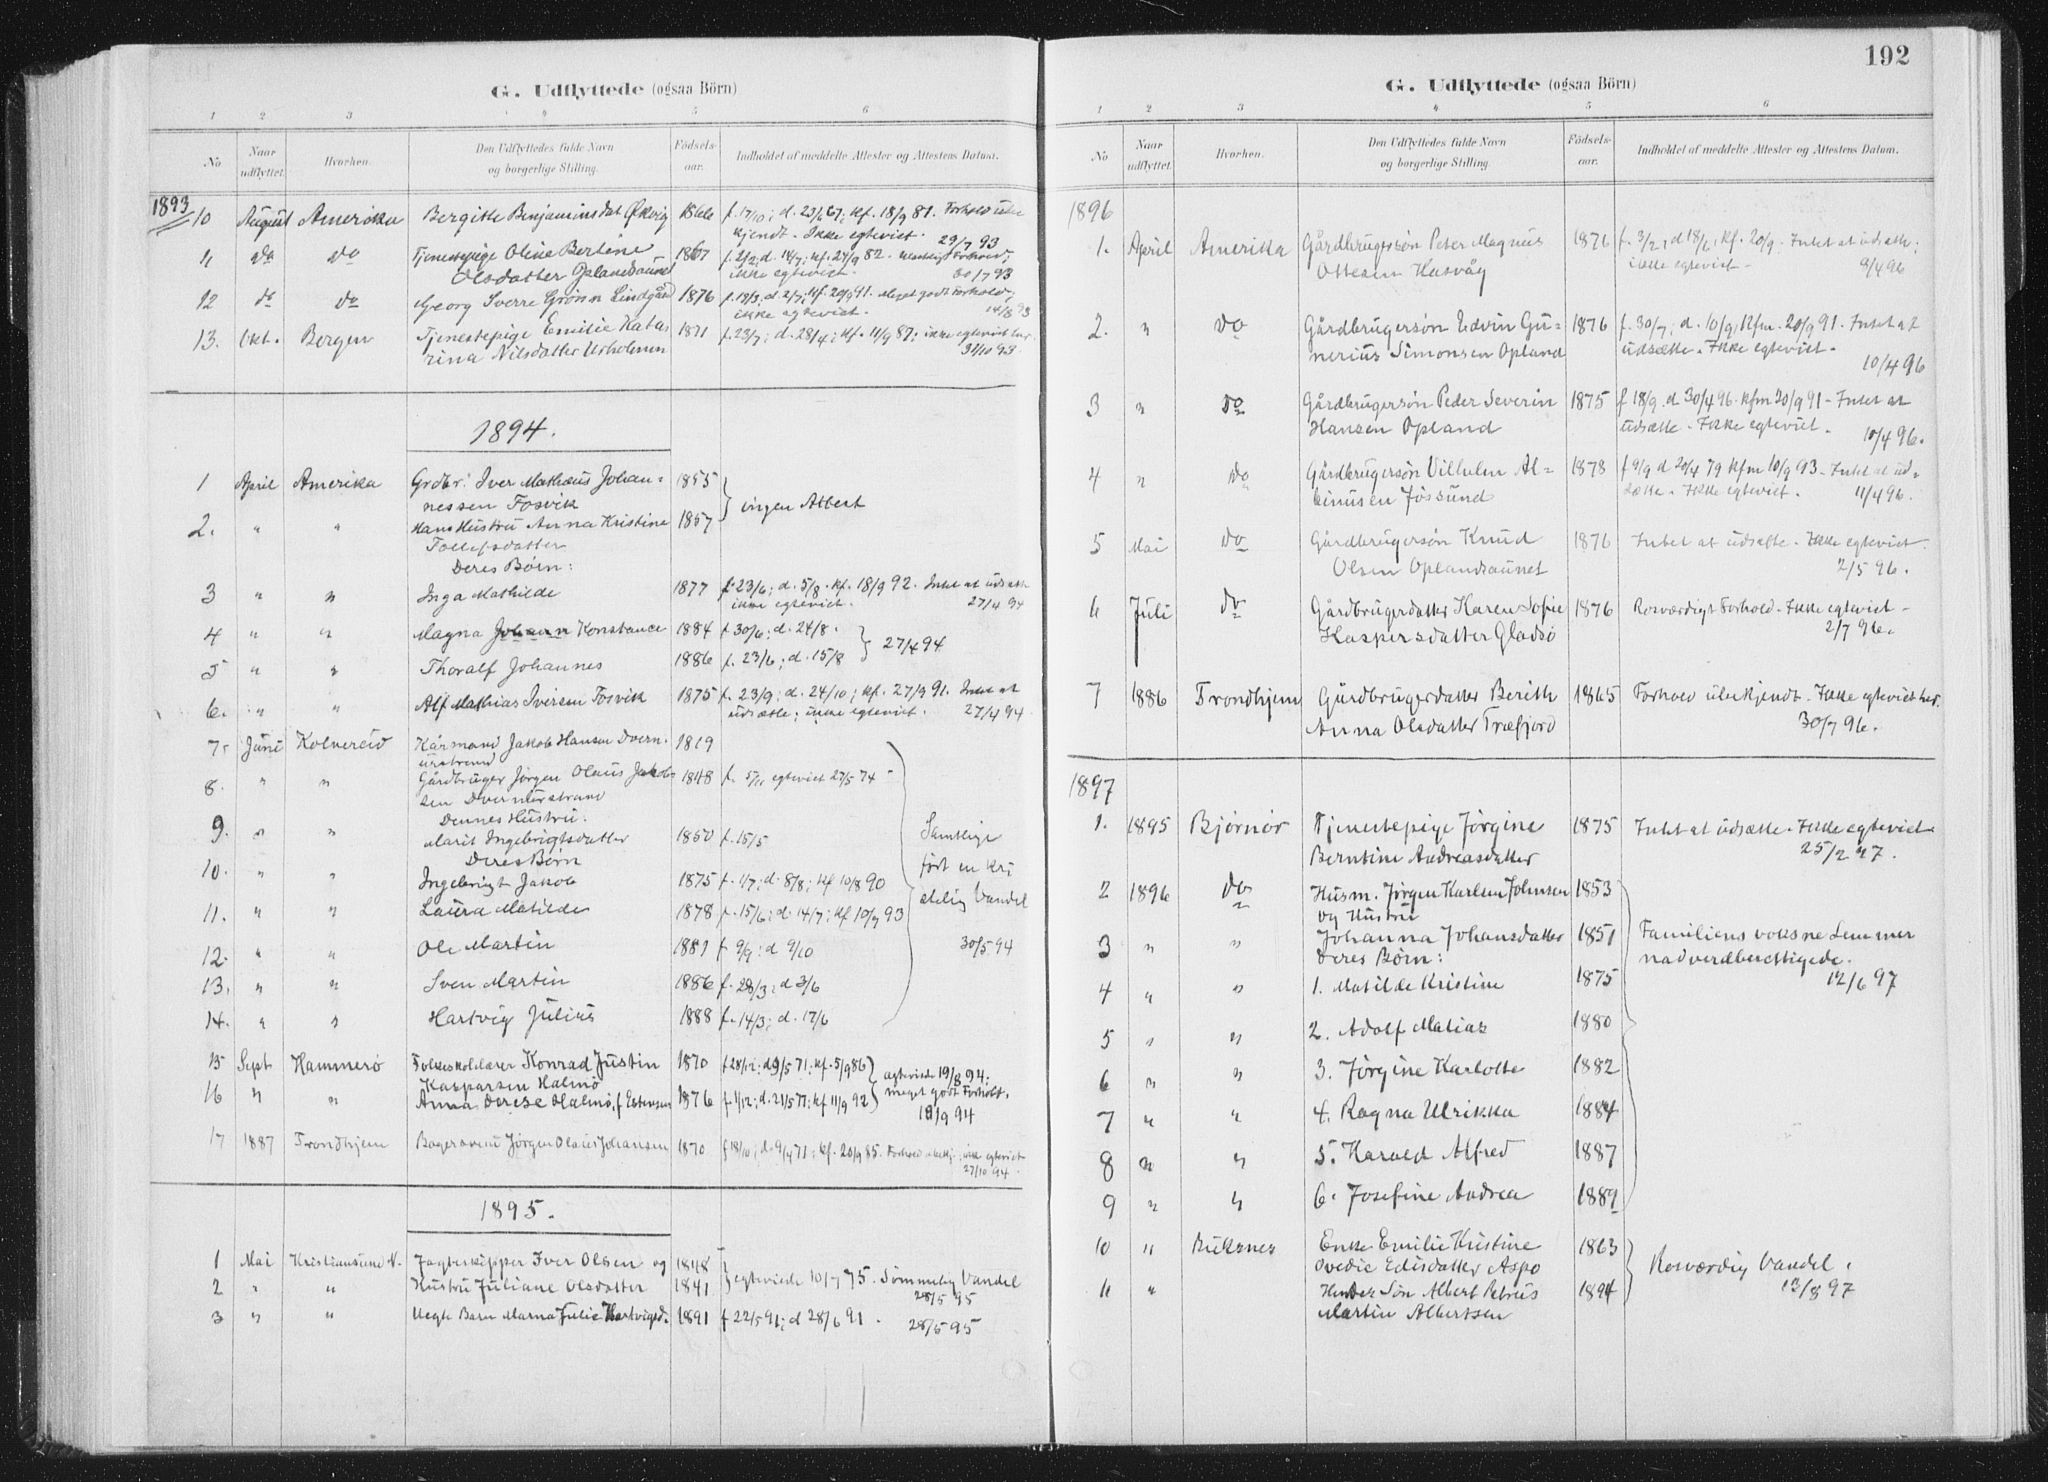 G. Udflyttede (ogsaa Börn)
1 2 3 4 5 6
No Naar udflyttet. Hvorhen. Den Udflyttedes fulde Navn og borgerlige Stilling. Födsels-aar. Indholdet af meddelte Attester og Attestens Datum.
1893
10 August Amerika Bergitte Benjaminsdat Økvig 1866 f. 17/10; d. 23/6 67; kf. 18/9 81. Forhold ube
kjendt. Ikke egteviet.
29/7 93
11 do do Tjenestepige Oline Bertine 1867 f. 2/2; d. 14/7; kf. 24/9 82. Forhold,
Olsdatter Oplandsaunet ikke egteviet. 30/7 93
12 do do Georg Sverre Grönn Lindgård 1876 f. 18/3; d. 2/7; kf. 20/9 91. Meget godt Forhold,
ikke egteviet. 14/8 93
13. Okt. Bergen Tjenestepige Emilie Kata= 1871 f. 23/7; d. 28/4; kf. 11/9 87; ikke egteviet her.
rina Nilsdatter Urholmen 31/10 93
1894.
1 April Amerika Grdbr. Iver Mathæus Johan= 1855
nessen Fosvik
ingen Attest
2. " " Hans Hustru Anna Kristine 1857
Tollefsdatter
Deres Børn:
3 " " Inga Mathilde 1877 f. 23/6; d. 5/8. kf. 18/9 92. Intet at udsætte
ikke egteviet. 27/4 94
4 " " Magna Johann Konstance 1884 f. 30/6; d. 24/8.
27/4 94
5 " " Thoralf Johannes 1886 f. 23/6; d. 15/8
6. " " Alf Mathias Iversen Fosvik 1875 f. 23/9; d. 24/10; kf. 27/9 91. Intet at
udsætte; ikke egteviet. 27/4 94
7. Juni Kolvereid Kårmand Jakob Hansen Dvern- 1819
urstrand
8. " " Gårdbruger Jörgen Olaus Jakob 1848 f. 5/11 egteviet 27/5 74
sen Dvernurstrand
Dennes Hustru:
9. " " Marit Ingebrigtsdatter 1850 f. 15/5
Samtlige
Deres Børn
ført en kri
10. " " Ingebrigt Jakob 1875 f. 1/7; d. 8/8; kf 10/8 90
stelig Vandel
11. " " Laura Matilde 1878 f. 15/6; d. 14/7; kf 10/9 93
12. " " Ole Martin 1881 f 9/9; d 9/10
30/5 94
13. " " Sven Martin 1886 f. 28/3; d 3/6
14. " " Hartvig Julius 1888 f. 14/3; d. 17/6
15 Sept Hammerö Folkeskolelærer Konrad Justin 1870 f 28/12; d 9/5 71; kf. 5/9 86
Kaspersen Halmö egteviede 19/8 94;
16 " " Anna Derese Halmö, f Estensen 1876 f. 1/12; d. 21/5 77; kf 11/9 92 meget godt Forhold.
18/9 94
17 1887 Trondhjem Bagersvend Jörgen Olaus Johansen 1870 f 18/10; d. 9/4 71; kf. 20/9 85. Forhold ubekj. ikke egteviet
27/10 94
1895.
1 Mai Kristiansund N. Jagteskipper Iver Olsen og 1848
2 " " Hustru Juliane Olsdatter 1841 egteviede 10/7 75. Sömmelig Vandel
28/5 95
3 " " Uegte Barn Marna Julie Hartvigsd. 1891 f 22/5 91; d 28/6 91. 28/5 95
192
G. Udflyttede (ogsaa Börn)
1 2 3 4 5 6
No Naar udflyttet. Hvorhen. Den Udflyttedes fulde Navn og borgerlige Stilling. Födsels-aar. Indholdet af meddelte Attester og Attestens Datum.
1896
1. April Amerika Gårdbrugersøn Peter Magnus 1876 f. 3/2; d 18/6; kf. 20/9. Intet at udsætte;
Ottesen Kasvåg ikke egteviet. 9/4 96
2. " do Gårdbrugersøn Edvin Gu= 1876 f. 30/7; d. 10/9; kfm. 20/9 91. Intet at
nerius Simonsen Opland udsætte. Ikke egteviet.
10/4 96
3 " do Gårdbrugersøn Peder Severin 1875 f 18/9. d 30/4 96. kfm 20/9 91 - Intet at
Hansen Opland udsætte. Ikke egteviet. 10/4 96.
4 " do Gårdbrugersøn Vilhelm Al= 1878 f 9/9 d 20/4 79 kfm 10/9 93 - Intet at ud=
binusen Jössund sætte. Ikke egteviet. 11/4 96.
5 Mai do Gårdbrugersøn Knud 1876 Intet at udsætte. Ikke egteviet.
Olsen Oplandsaunet 2/5 96.
6 Juli do Gårdbrugerdatter Karen Sofie 1876 Rosværdigt Forhold. Ikke egteviet -
Kaspersdatter Gladsö 2/7 96.
7 1886 Trondhjem Gårdbrugerdatter Berith 1865 Forhold ubekjendt. Ikke egteviet her.
Anna Olsdatter Træfjord 30/7 96.
1897
1. 1895 Bjørnör Tjenestepige Jörgine 1875 Intet at udsætte. Ikke egteviet
Berntine Andreasdatter 25/2 97.
2 1896 do Husm. Jörgen Karlsen Johnsen 1853
og Hustru
3 " " Johanna Johansdatter 1851 Familiens voksne Lemmer
Deres Børn: nadverdberettigede.
4 " " 1. Matilde Kristine 1875 12/6 97
5 " " 2. Adolf Matias 1880
6 " " 3. Jörgine Karlotte 1882
7 " " 4. Ragna Ulrikka 1884
8 " " 5. Harald Alfred 1887
9 " " 6. Josefine Andrea 1889
10 " Buksnes Enke Emilie Kristine 1863
Ovedie Edisdatter Aspö Rosværdig Vandel.
11 " Hendes Sön Albert Petrus 1894 13/8 97
Martin Albertsen